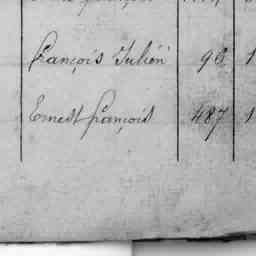 françois Julien 96 1
Ernest françois 487 1